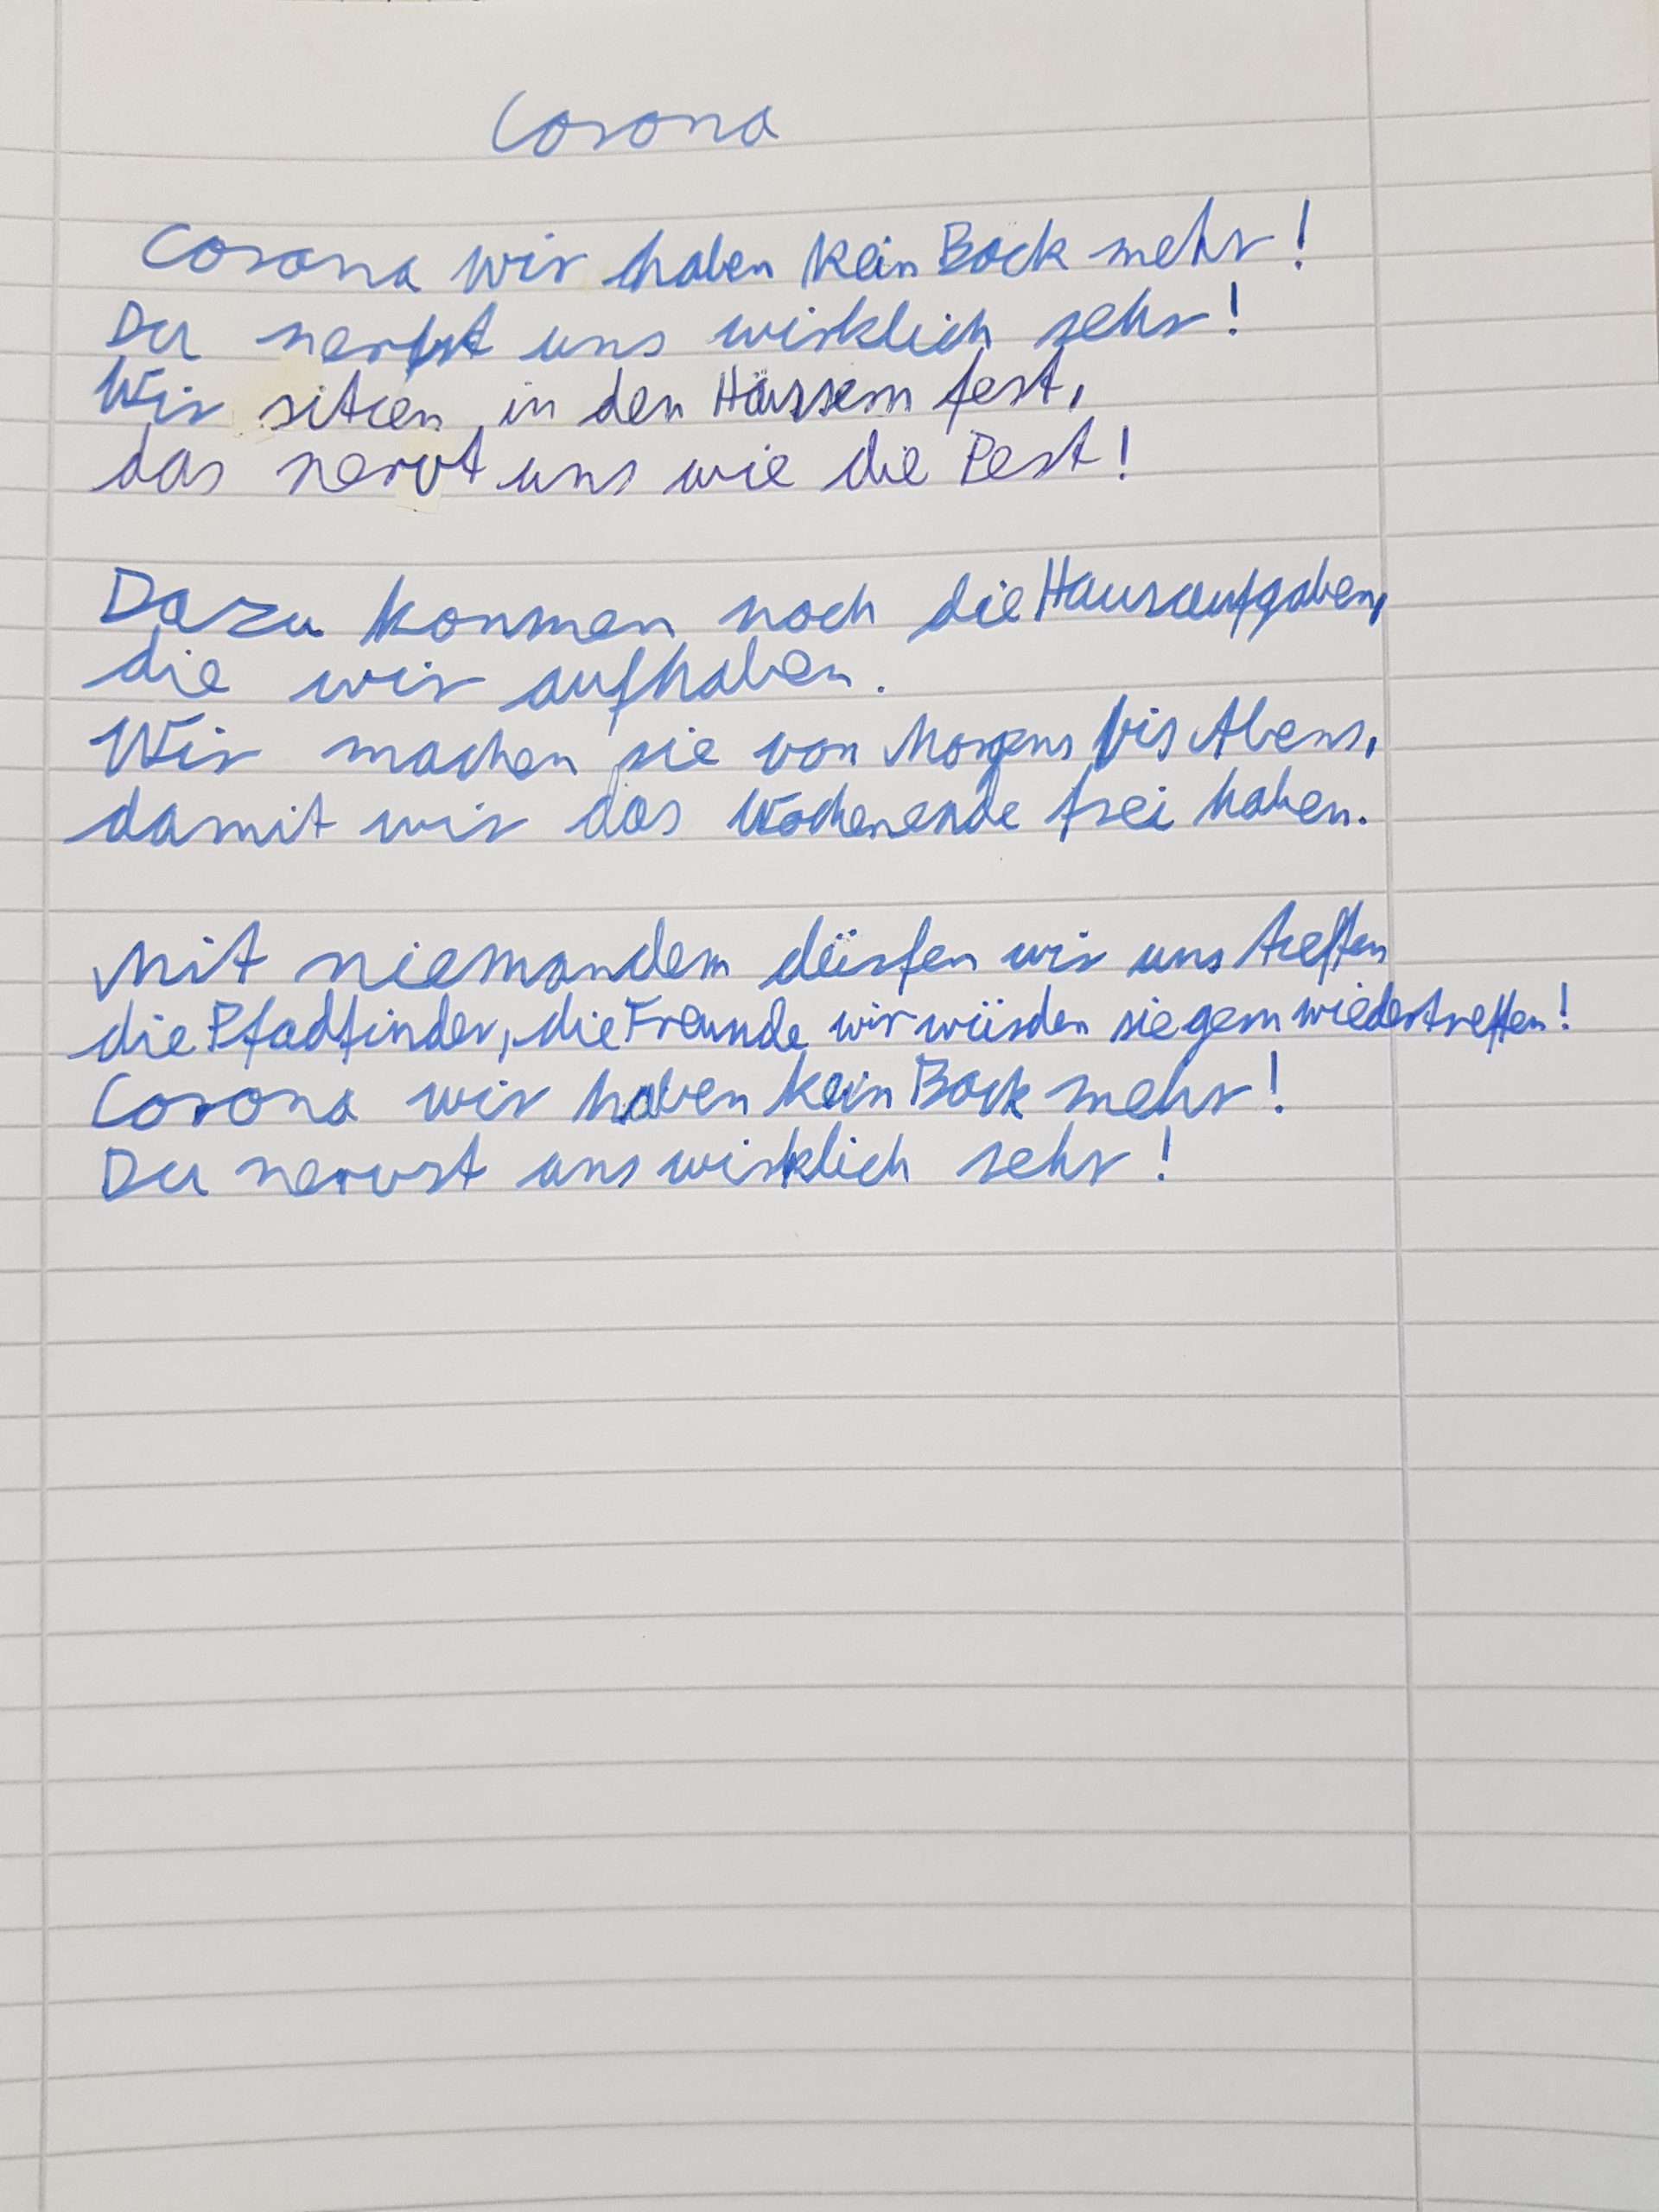 Corona
Corona wir haben kein Bock mehr!
Du nervst uns wirklich sehr!
Wir sitzen in den Häusern fest,
das nervt uns wie die Pest!
Dazu kommen noch die Hausaufgaben,
die wir aufhaben.
Wir machen sie von Morgens bis Abens,
damit wir das Wochenende frei haben.
Mit niemandem dürfen wir uns treffen
die Pfadfinder, die Freunde wir würden sie gern wiedertreffen!
Corona wir haben kein Bock mehr!
Du nervst uns wirklich sehr!